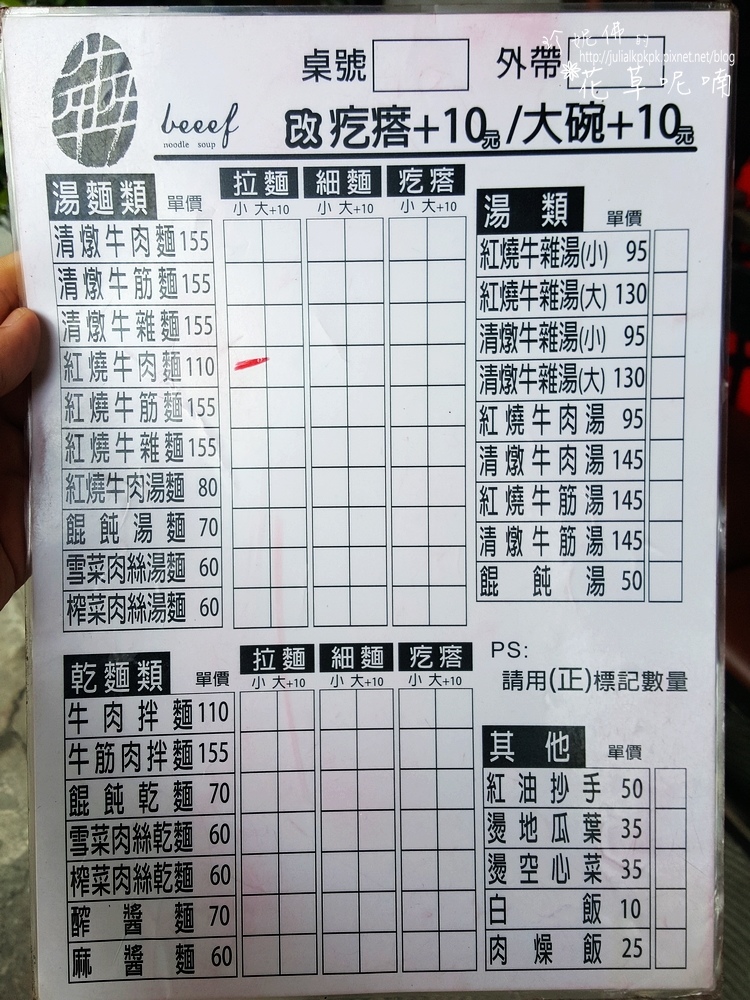 珍妮佛的
http://julialkpkpk.pixnet.net/blog
花草呢喃
桌號 外帶
beeef
noodle soup
改疙瘩+10元/大碗+10元
湯麵類 單價 拉麵 細麵 疙瘩
小 大+10 小 大+10 小 大+10
清燉牛肉麵 155
清燉牛筋麵 155
清燉牛雜麵 155
紅燒牛肉麵 110
紅燒牛筋麵 155
紅燒牛雜麵 155
紅燒牛肉湯麵 80
餛飩湯麵 70
雪菜肉絲湯麵 60
榨菜肉絲湯麵 60
湯類 單價
紅燒牛雜湯(小) 95
紅燒牛雜湯(大) 130
清燉牛雜湯(小) 95
清燉牛雜湯(大) 130
紅燒牛肉湯 95
清燉牛肉湯 145
紅燒牛筋湯 145
清燉牛筋湯 145
餛飩湯 50
乾麵類 單價 拉麵 細麵 疙瘩
小 大+10 小 大+10 小 大+10
牛肉拌麵 110
牛筋肉拌麵 155
餛飩乾麵 70
雪菜肉絲乾麵 60
榨菜肉絲乾麵 60
酢醬麵 70
麻醬麵 60
PS:
請用(正)標記數量
其他 單價
紅油抄手 50
燙地瓜葉 35
燙空心菜 35
白飯 10
肉燥飯 25